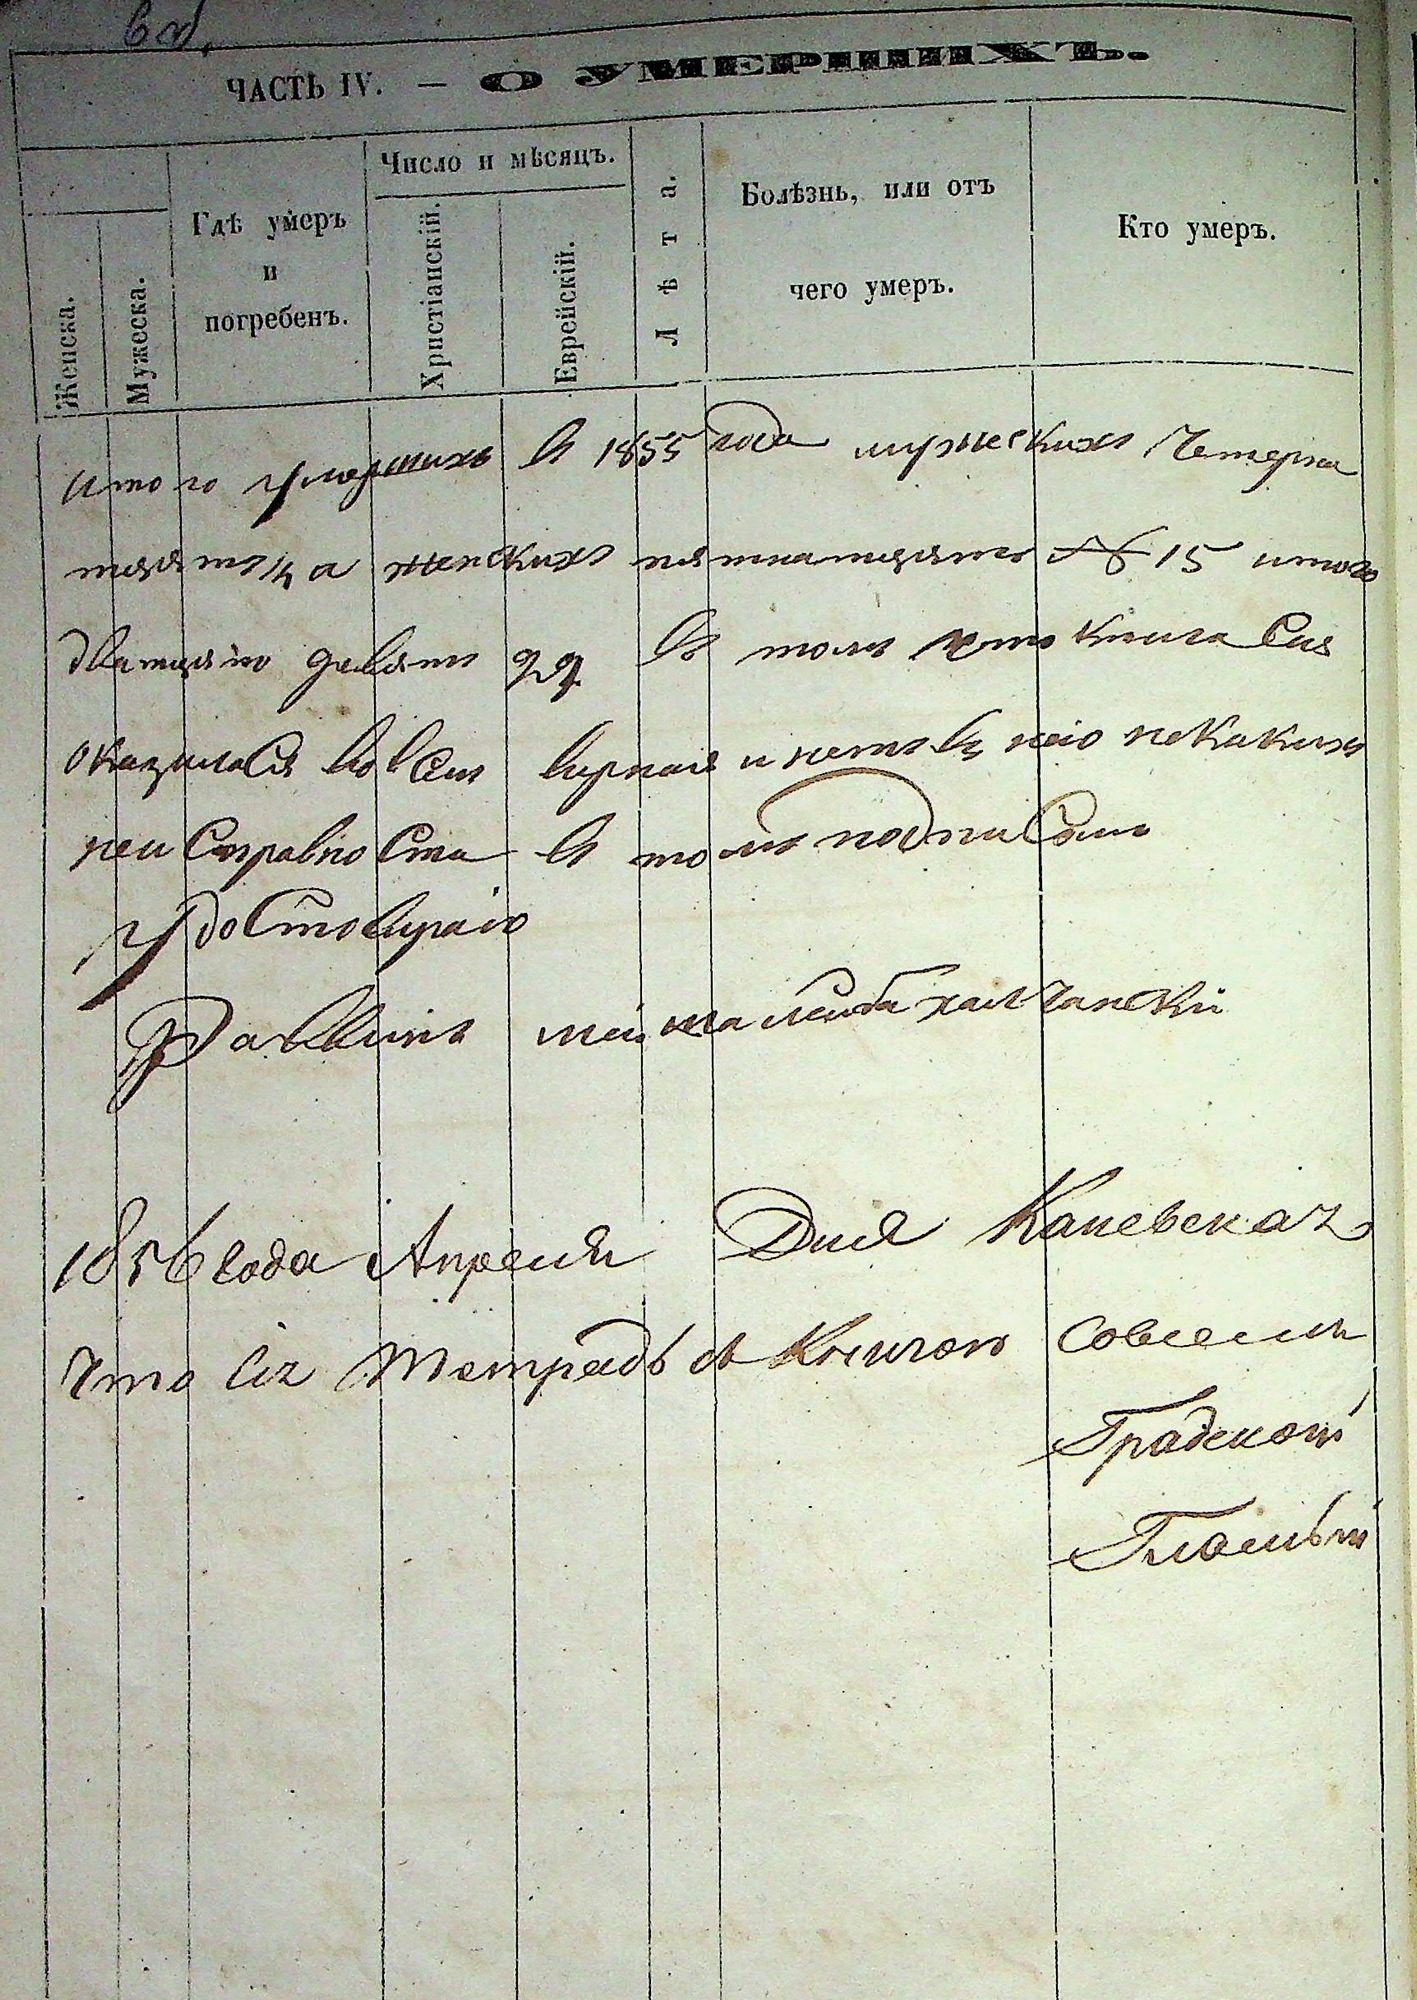 ЧАСТЬ IV. — О УМЕРШИХЪ.
Женска.
Мужеска.
Гдѣ умеръ
и
погребенъ.
Число и мѣсяцъ.
Христіанскій.
Еврейскій.
Лѣта.
Болѣзнь, или отъ
чего умеръ.
Кто умеръ.
итого умершихъ въ 1855 года мужескихъ Четерна
тцять а женскихъ пятнатцять № 15 итого
дватцять девять 29. въ томъ что книга Сия
оказиласЯ вовСем вирная и нетъ въ нею некакихъ
неиСправноСти въ томъ подпиСомъ
удоСтовираю
Раввинъ
1856 года Апреля Дня Каневская
Что сія Тетрадь съ Книгою совсемъ
Градской
Гласный